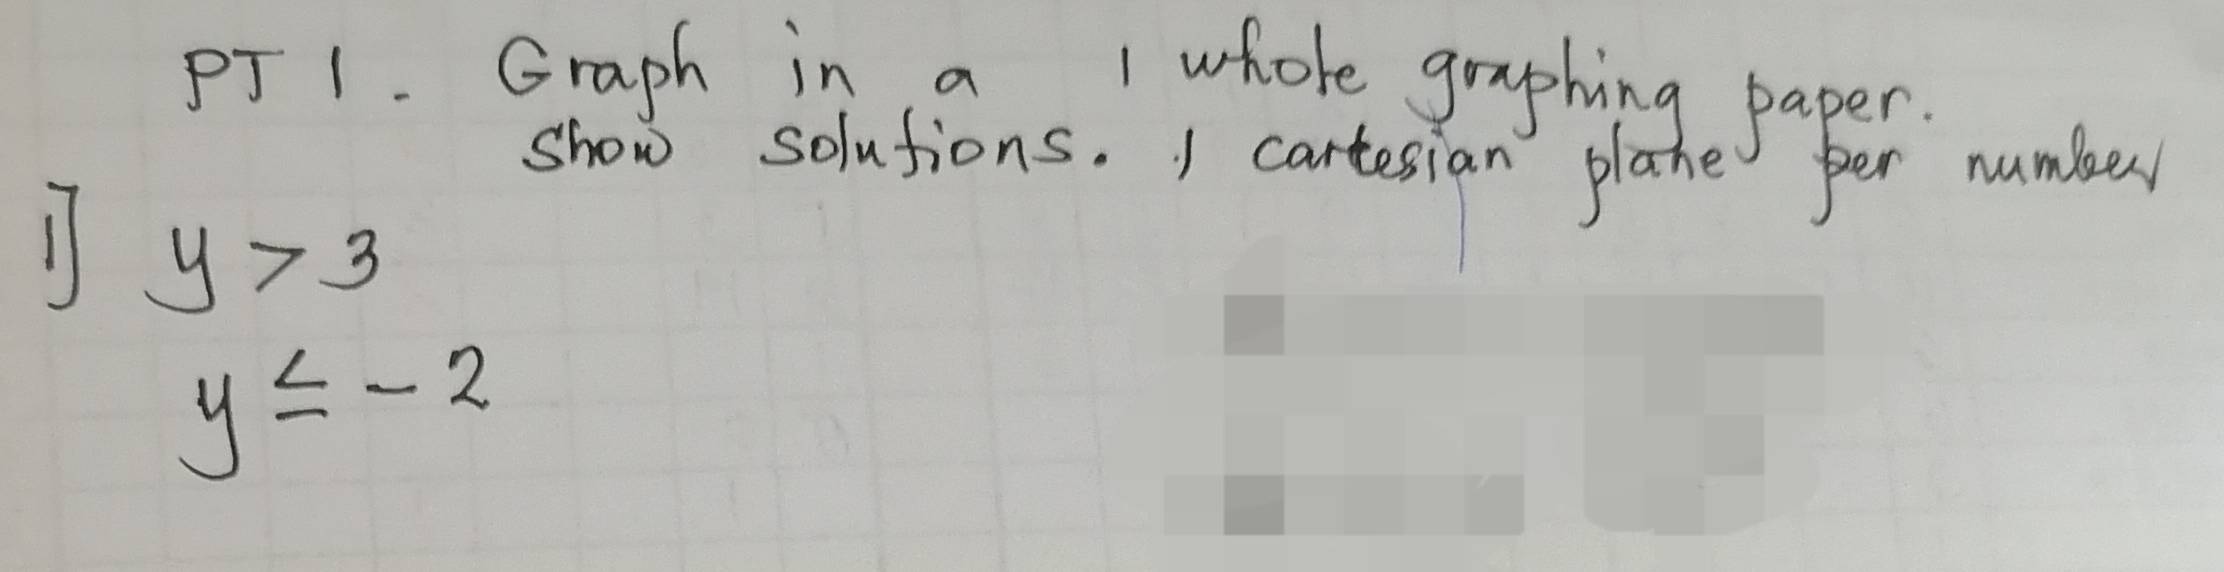 PT 1. Graph in a 1 whole graphing paper.
Show solutions. 1 cartesian plane per number
1] y > 3
y ≤ - 2